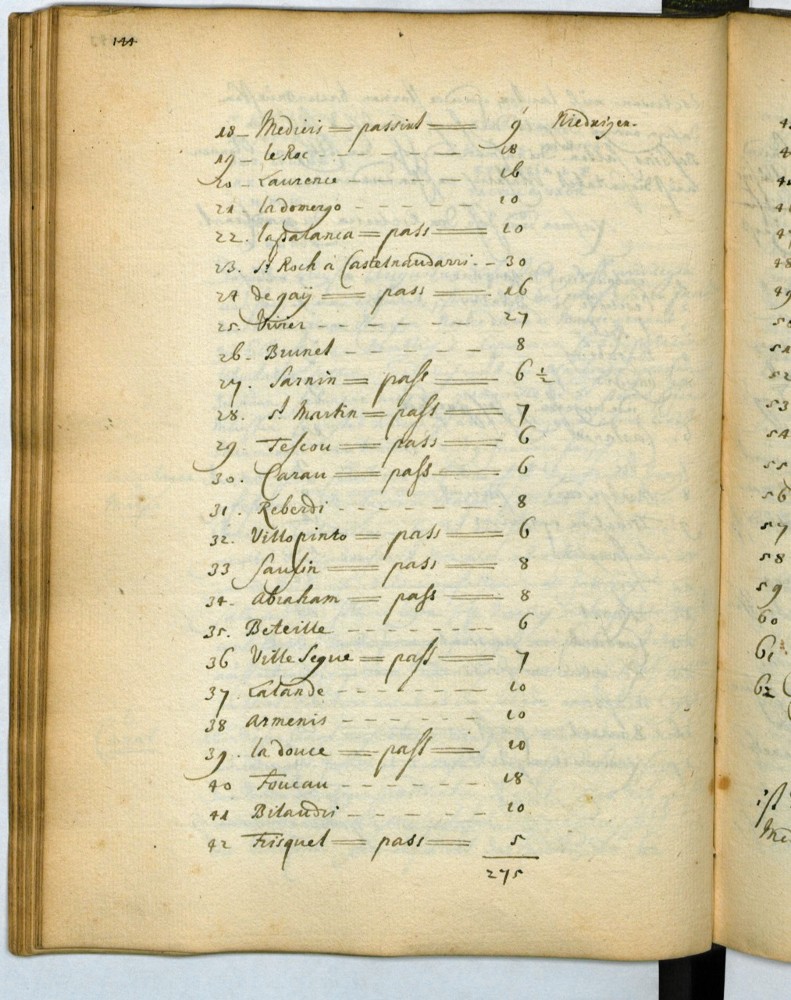 144
18 – Mediris = passirt = 9 Niedriger.
19 – le Roc – – – – 18
20 – Laurence – – – – 16
21 ladomergo – – – – 10
22. lapalanca = pass = 10
23. St Roch à Castelnaudarri. – 30
24 de gaÿ = pass = 16
25. Vivier – – – – 27
26. Brunel – – – – – 8
27. Sarnin = pass = 6 ½
28. St Martin = pass = 7
29. Tescou = pass = 6
30. Carau = pass = 6
31. Reberdi – – – – – – 8
32. Villopinto = pass = 6
33 Saussin = pass = 8
34. abraham = pass = 8
35. Beteille – – – – – 6
36 Ville Seque = pass = 7
37. Lalande – – – – – – 10
38 armenis – – – – – – 10
39. la douce = pass = 10
40 Foucau – – – – – – 18
41 Bilaudis – – – – – 10
42 Frisquel = pass = 5
275
4
4
44
46
47
48
49
50
51
52
53
54
55
56
57
58
59
60
61
62